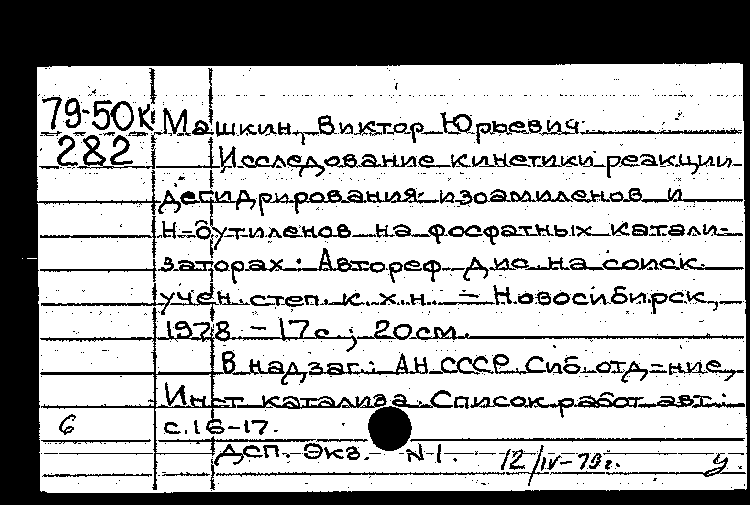 79-50к Машкин, Виктор Юрьевич
282 Исследование кинетики реакции
дегидрирования изоамиленов и
н-бутиленов на фосфатных катали-
заторах: Автореф. дис. на соиск.
учен. степ. к. х. н. - Новосибирск,
1978. - 17с.; 20см.
В надзаг.: АН СССР. Сиб. отд-ние,
Инст. катализа. Список работ авт.:
6 с. 16-17.
ДСП. Экз. N 1. 12/IV-79г. У.